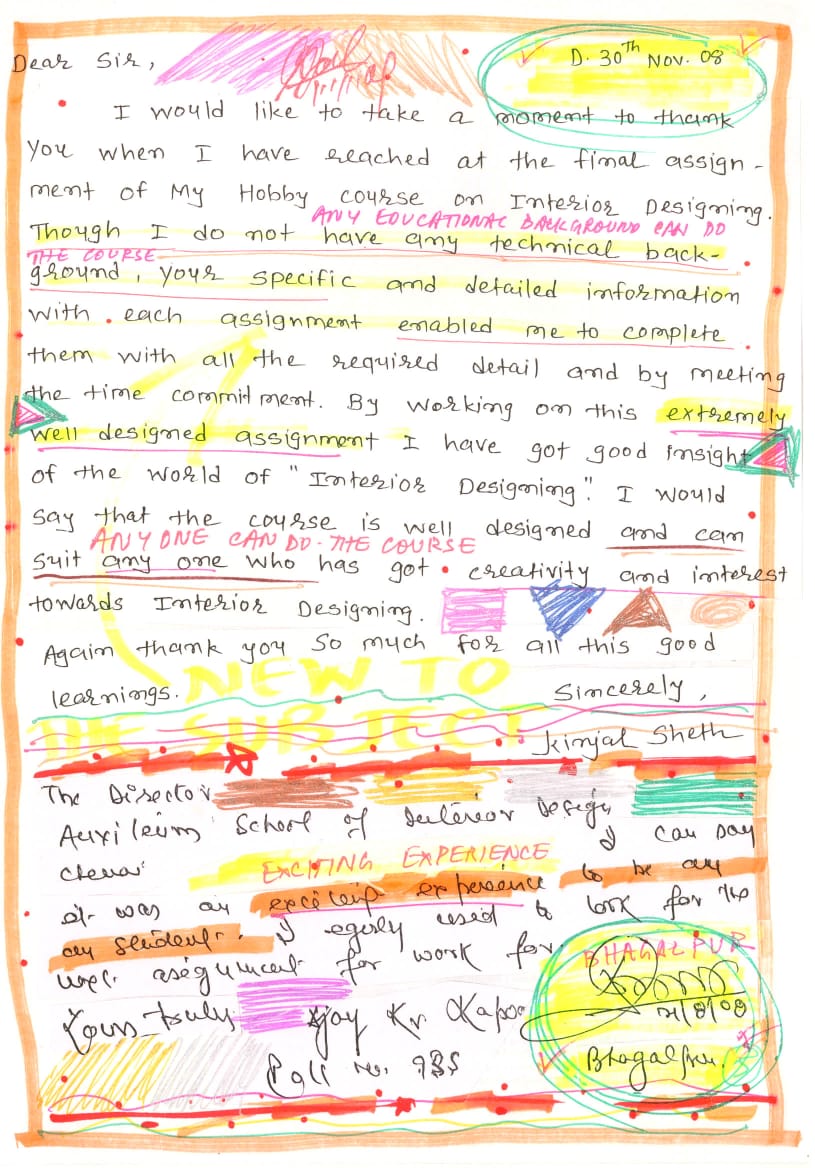 Dear Sir,
D. 30th Nov. 08
I would like to take a moment to thank
you when I have reached at the final assign-
ment of My Hobby course on Interior Designing.
ANY EDUCATIONAL BACKGROUND CAN DO
Though I do not have any technical back-
THE COURSE
ground, your specific and detailed information
with each assignment enabled me to complete
them with all the required detail and by meeting
the time commitment. By working on this extremely
well designed assignment I have got good insight
of the world of "Interior Designing". I would
say that the course is well designed and can
ANYONE CAN DO THE COURSE
suit any one who has got creativity and interest
towards Interior Designing.
Again thank you so much for all this good
learnings.
NEW TO
Sincerely,
THE SUBJECT
Kinjal Sheth
The Director
Auxileum School of Interior Design
I can say
EXCITING EXPERIENCE
it was an experience to be an
my student. I egerly used to look for the
next assignment for work for.
BHAGALPUR
Yours truly
Ajay Kr Kapoor
Bhagalpur.
Roll No. 935